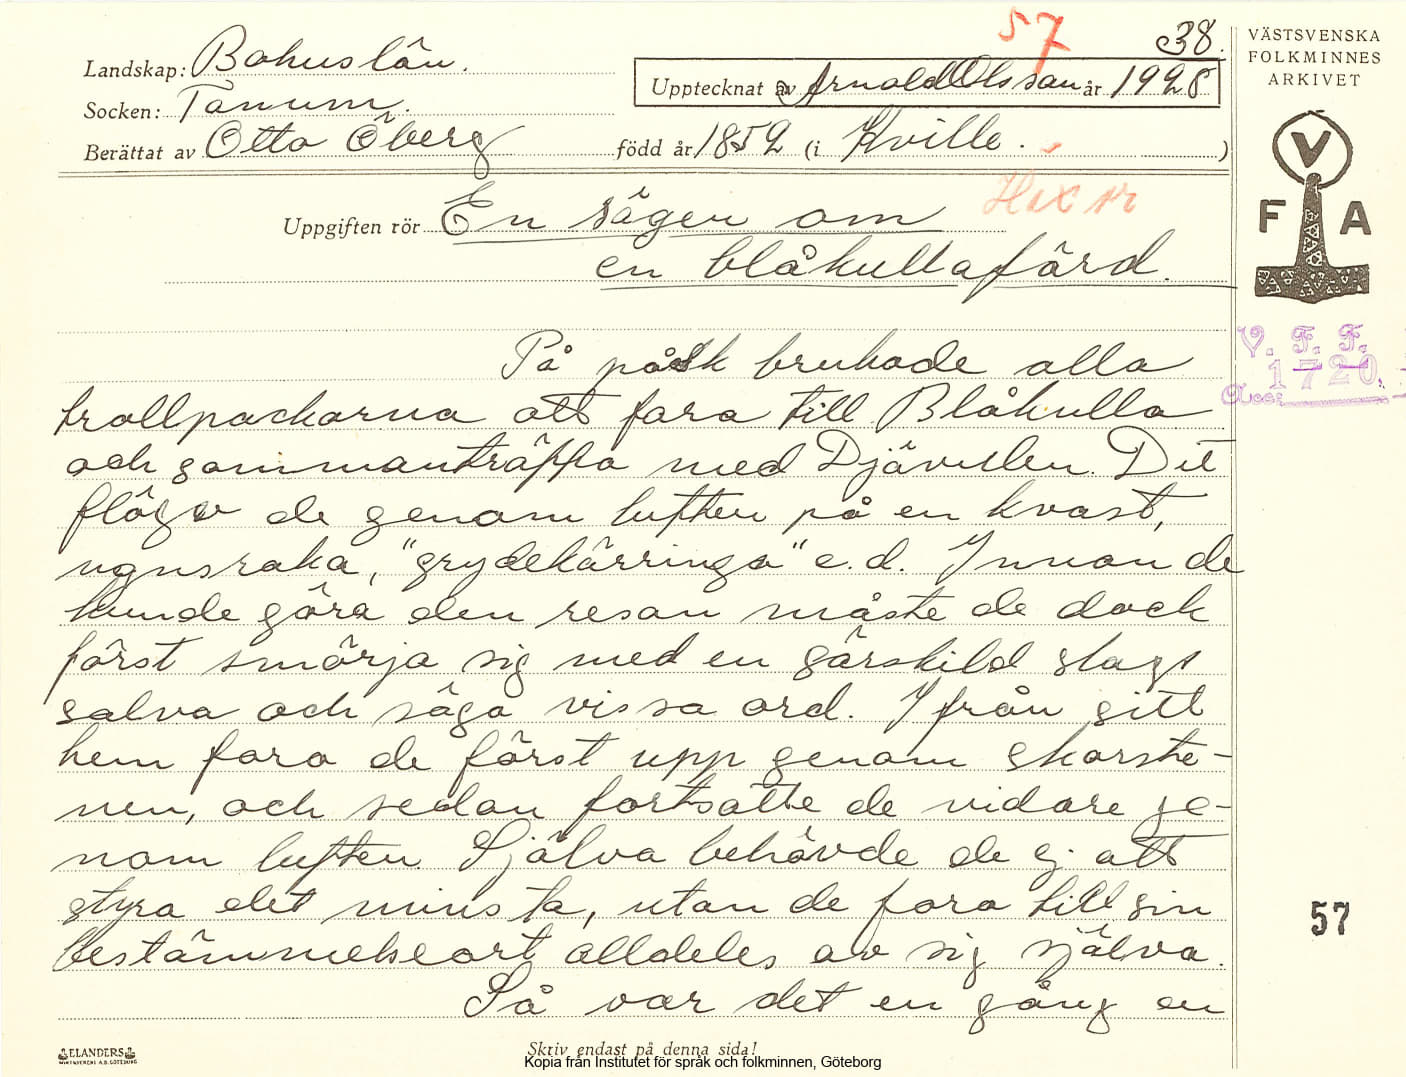 57
38.
Landskap: Bohuslän.
Upptecknat av Arnold Olsson år 1928
Socken: Tanum.
Berättat av Otto Öberg född år 1852 (i Kville. )
Häxor
Uppgiften rör En sägen om
en blåkullafärd.
På påsk brukade alla
trollpackorna att fara till Blåkulla
och sammanträffa med Djävulen. Dit
flögo de genom luften på en kvast,
ugnsraka, "grydekärringa" e.d. Innan de
kunde göra den resan måste de dock
först smörja sig med en särskild slags
salva och säga vissa ord. Ifrån sitt
hem foro de först upp genom skorste-
nen, och sedan fortsatte de vidare ge-
nom luften. Själva behövde de ej att
styra det minsta, utan de foro till sin
bestämmelseort alldeles av sig själva.
Så var det en gång en
VÄSTSVENSKA
FOLKMINNES
ARKIVET
V
F A
V. F. F.
1720.
Acc:
57
ELANDERS
Skriv endast på denna sida!
Kopia från Institutet för språk och folkminnen, Göteborg